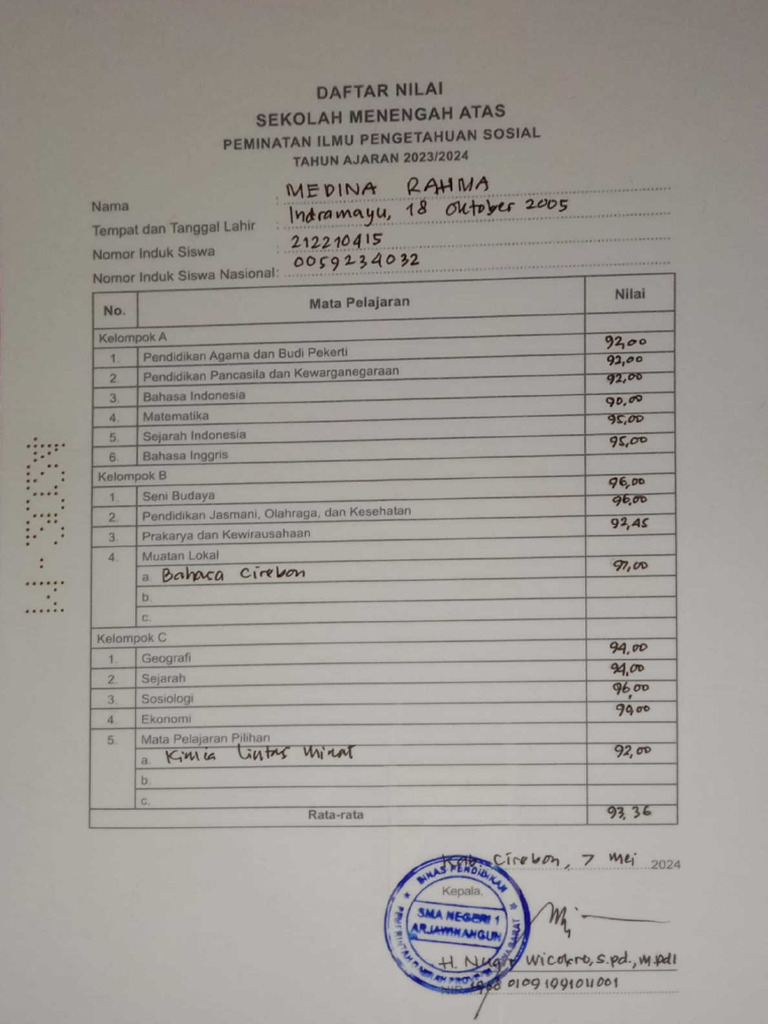 DAFTAR NILAI
SEKOLAH MENENGAH ATAS
PEMINATAN ILMU PENGETAHUAN SOSIAL
TAHUN AJARAN 2023/2024
Nama : MEDINA RAHMA
Tempat dan Tanggal Lahir : Indramayu, 18 Oktober 2005
Nomor Induk Siswa : 212210415
Nomor Induk Siswa Nasional: 0059234032
No. Mata Pelajaran Nilai
Kelompok A
1. Pendidikan Agama dan Budi Pekerti 92,00
2. Pendidikan Pancasila dan Kewarganegaraan 92,00
3. Bahasa Indonesia 92,00
4. Matematika 90,00
5. Sejarah Indonesia 95,00
6. Bahasa Inggris 95,00
Kelompok B
1. Seni Budaya 96,00
2. Pendidikan Jasmani, Olahraga, dan Kesehatan 96,00
3. Prakarya dan Kewirausahaan 92,45
4. Muatan Lokal
a. Bahasa Cirebon 97,00
b.
c.
Kelompok C
1. Geografi 94,00
2. Sejarah 94,00
3. Sosiologi 96,00
4. Ekonomi 9400
5. Mata Pelajaran Pilihan
a. Kimia Lintas Minat 92,00
b.
c.
Rata-rata 93,36
Kab. Cirebon, 7 Mei 2024
Kepala,
DINAS PENDIDIKAN
SMA NEGERI 1
ARJAWINANGUN
PEMERINTAH DAERAH PROVINSI JAWA BARAT
H. Wicoksro, S.pd., M.pdI
NIP. 1968 0109 1991011001